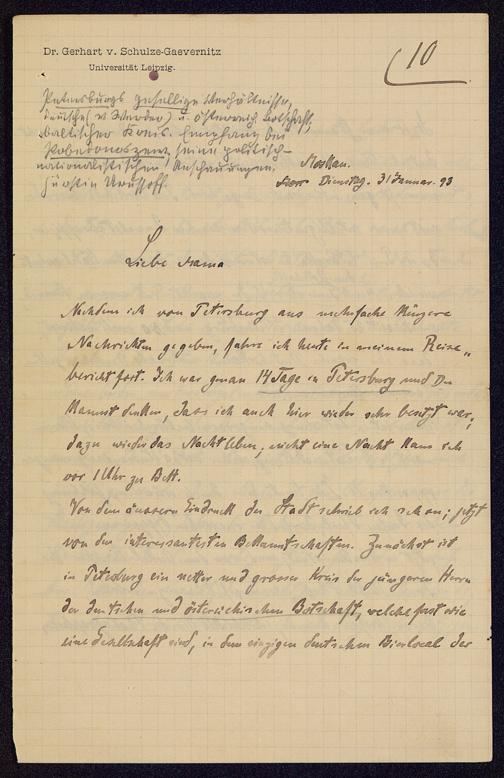 Dr. Gerhart v. Schulze-Gaevernitz
Universität Leipzig.
10
Petersburgs gesellige Verhältnisse,
deutsche (v. Werder) u. österreich Botschaft,
baltischer Konis. Empfang bei
Pobedonoszew, seine politisch-
nationalistischen Anschauungen.
Fürstin Urussoff.
Moskau.
Dienstag. 31 Januar. 93
Liebe Mama
Nachdem ich von Petersburg aus mehrfache kürzere
Nachrichten gegeben, fahre ich heute in meinem Reise„
bericht fort. Ich war genau 14 Tage in Petersburg und Du
kannst denken, dass ich auch hier wieder sehr besetzt war;
dazu wieder das Nachtleben; nicht eine Nacht kam ich
vor 1 Uhr zu Bett.
Von dem äussern Eindruck der Stadt schrieb ich schon; jetzt
von den interessantesten Bekanntschaften. Zunächst ist
in Petersburg ein netter und grosser Kreis der jüngeren Herrn
der deutschen und östereichischen Botschaft, welche fast wie
eine Gesellschaft sind, in dem einzigen deutschen Bierlocal der